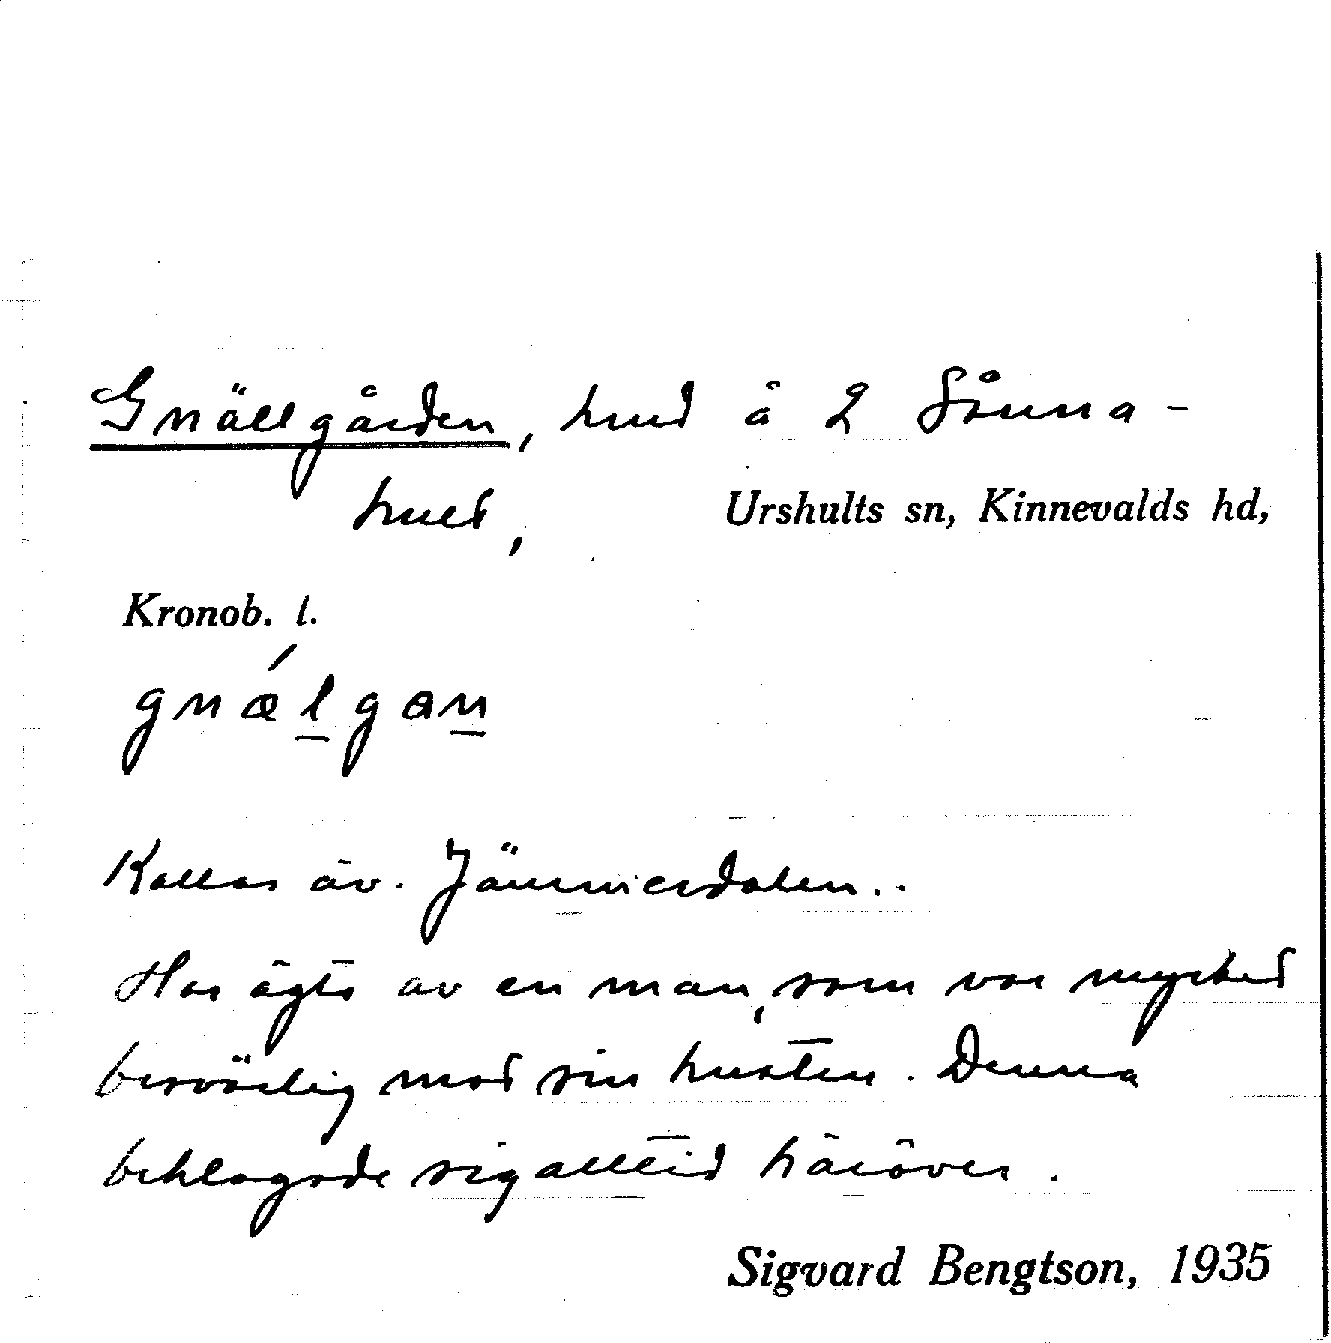 Gnällgården, hmd å 2 Sånna-
hult,
Urshults sn, Kinnevalds hd,
Kronob. l.
gnǽl̠gan̠
Kallas äv. Jämmerdalen..
Har ägts av en man, som var mycket
besvärlig mot sin hustru. Denna
beklagade sig alltid häröver.
Sigvard Bengtson, 1935